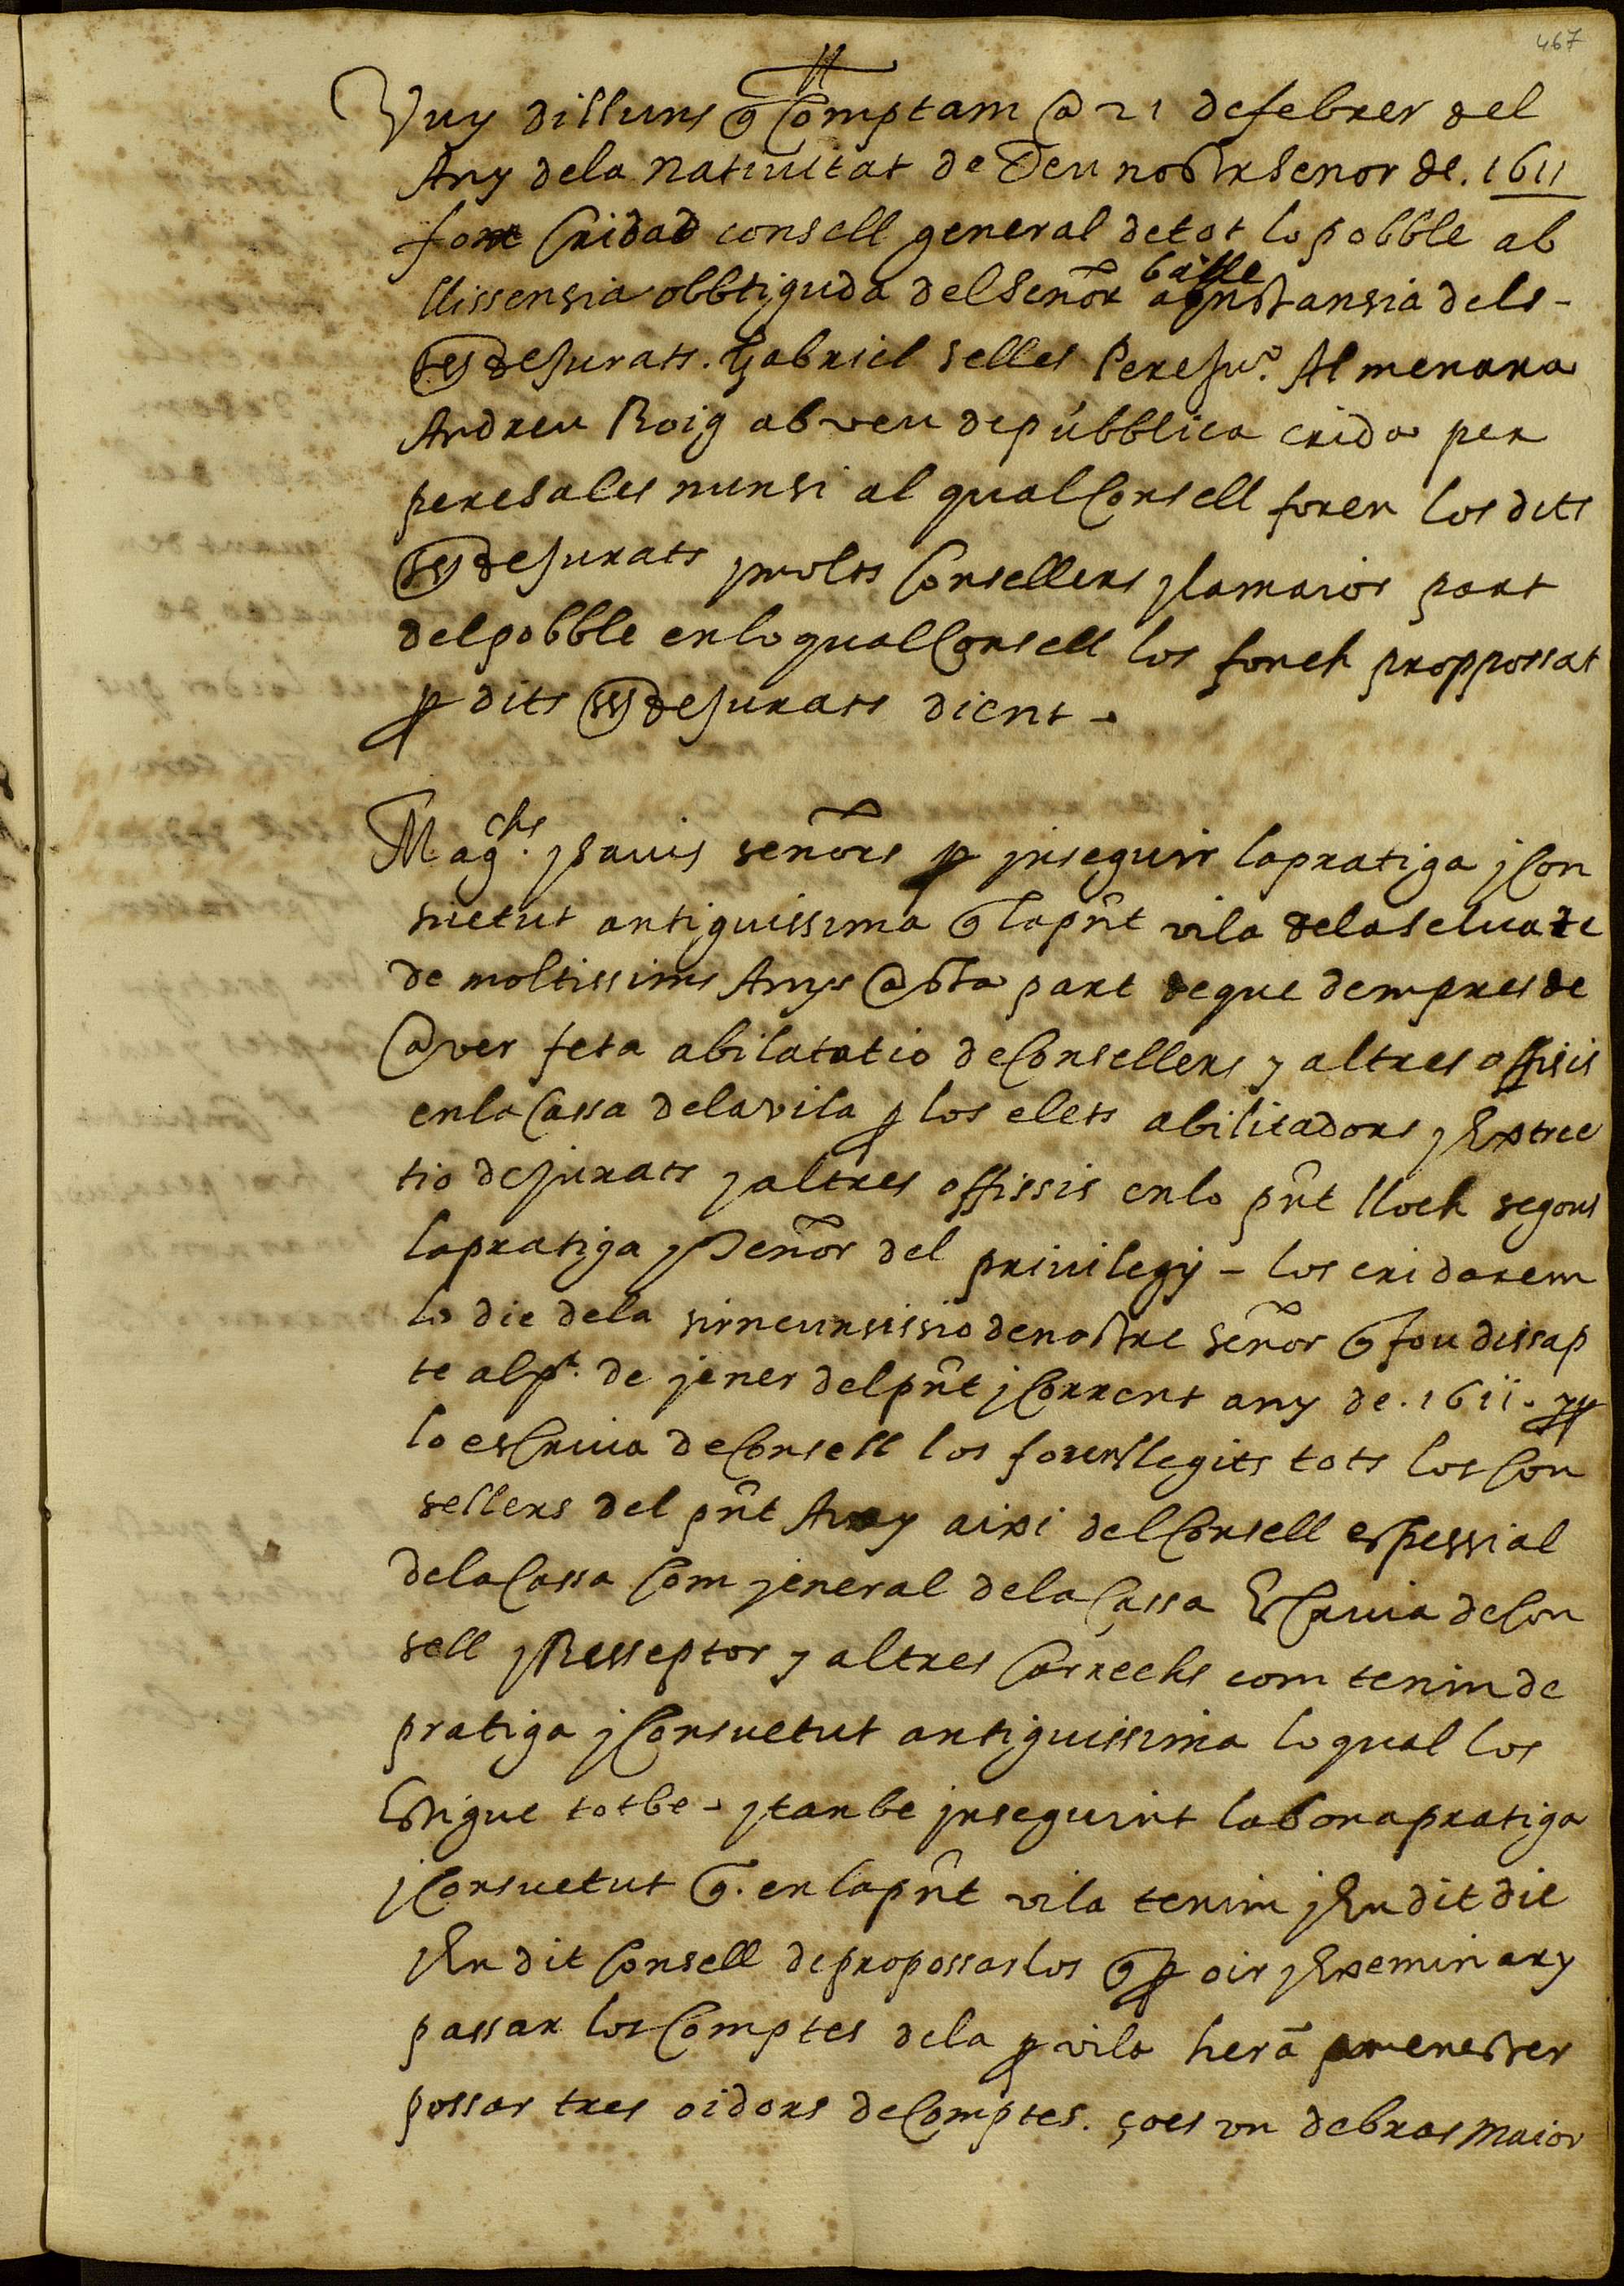 467
Vuy dilluns q Comptam @ 21 de febrer del
Any dela natiuitat de Deu nostrsenor de. 1611
fonc Cridad consell general de tot lo pobble ab
llissensia obbtiguda del Señor batlle a instansia dels -
ss de Jurats. Gabriel selles Pere Ju.º Almenara
Andreu Roig ab veu de púbblica crida per
peresales nunsi al qual Consell foren los dits
ss de Jurats y molts Consellers y la maior part
del pobble en lo qual Consell los fonch proppossat
p dits ss de Jurats dient -
Mag.chs y sauis señors p inseguir la pratiga y Con
suetut antiguissima q la pñt vila de la Selua te
de moltissims Anys @ sta part de que dempres de
@ver feta abilatatio de Consellers y altres offisis
en la Cassa de la vila p los elets abilitadors y Extrec
tio de jurats y altres offissis en lo pñt lloch segons
la pratiga y señor del priuilegi - los cridarem
lo die dela sirncunsissio de nostre señor q fou dissap
te al p.r de jener del pñt y Corrent any de . 1611 . y p
lo esCriua de Consell los foren llegits tots los Con
sellers del pñt Any aixi del Consell espessial
de la Cassa Com jeneral de la Cassa EsCriua de Con
sell y Resseptor y altres Carrechs com tenim de
pratiga y Consuetut antiguissima lo qual los
Estigue tot be - y tanbe inseguint la bona pratiga
y Consuetut q. en la pñt vila tenim y En dit die
y En dit Consell de propossarlos q p oir y Exeminar y
passar los Comptes de la p vila herã menester
possar tres oidors de Comptes. ços vn de bras maior